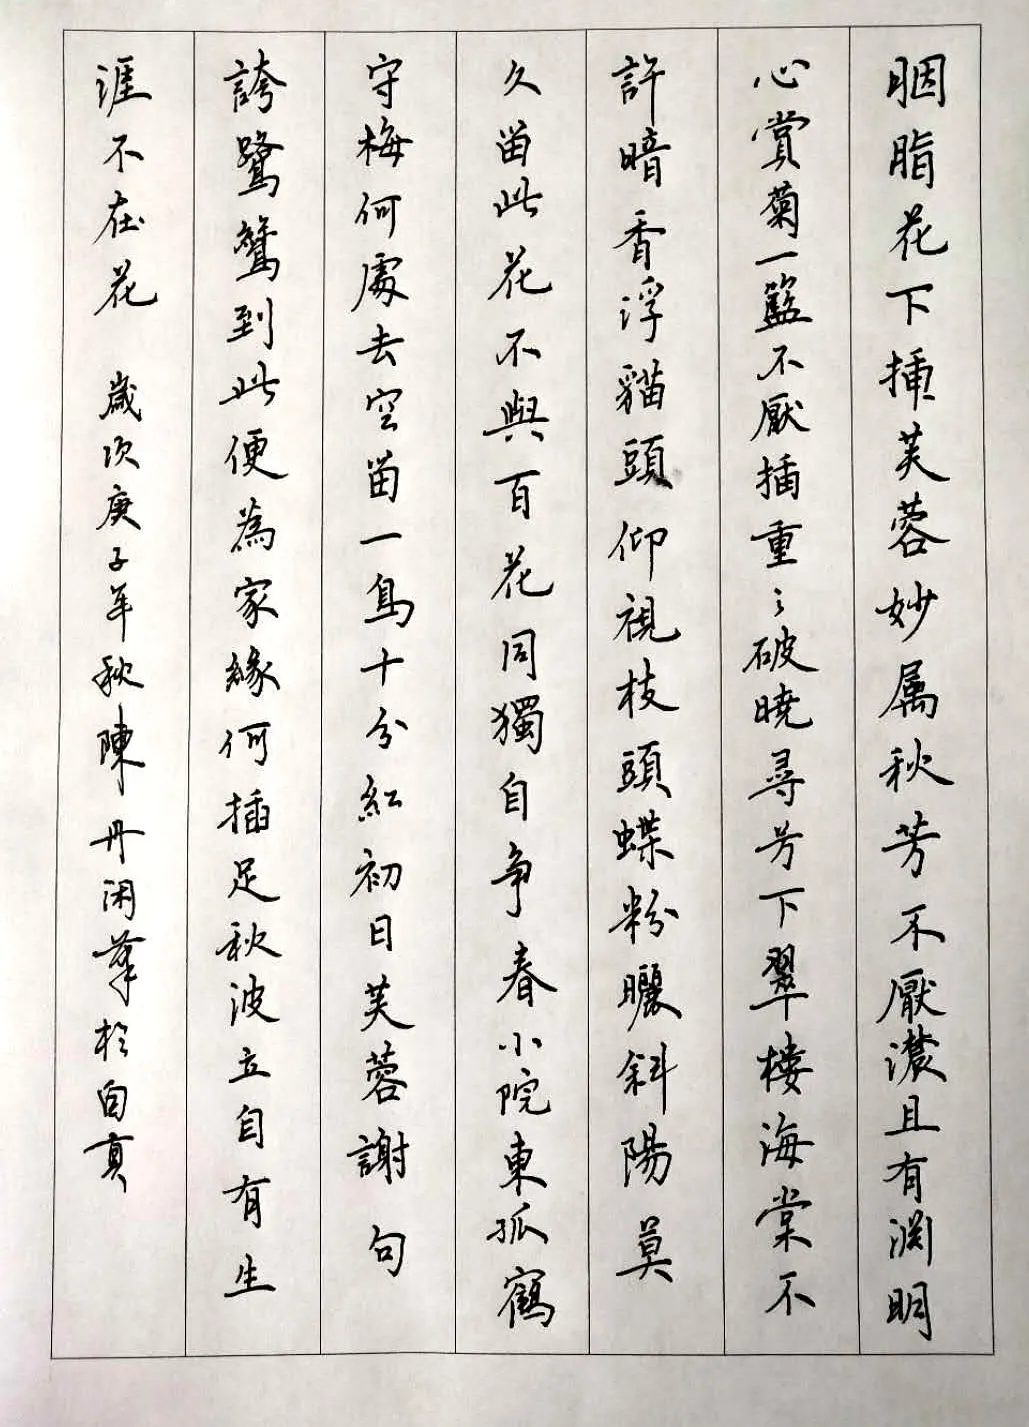 胭脂花下插芙蓉妙属秋芳不厭濃且有淵明
心賞菊一籃不厭插重〻破曉尋芳下翠樓海棠不
許暗香浮貓頭仰視枝頭蝶粉曬斜陽莫
久留此花不與百花同獨自争春小院東孤鶴
守梅何處去空留一鳥十分紅初日芙蓉謝句
誇鷺鷥到此便為家緣何插足秋波立自有生
涯不在花 歲次庚子年秋陳丹闲筆於自真